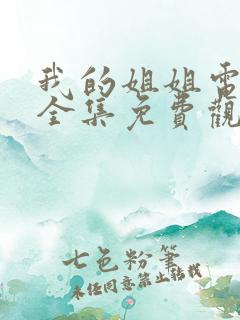 我的姐姐電
全集免費觀
七色粉筆
未经同意禁止转载